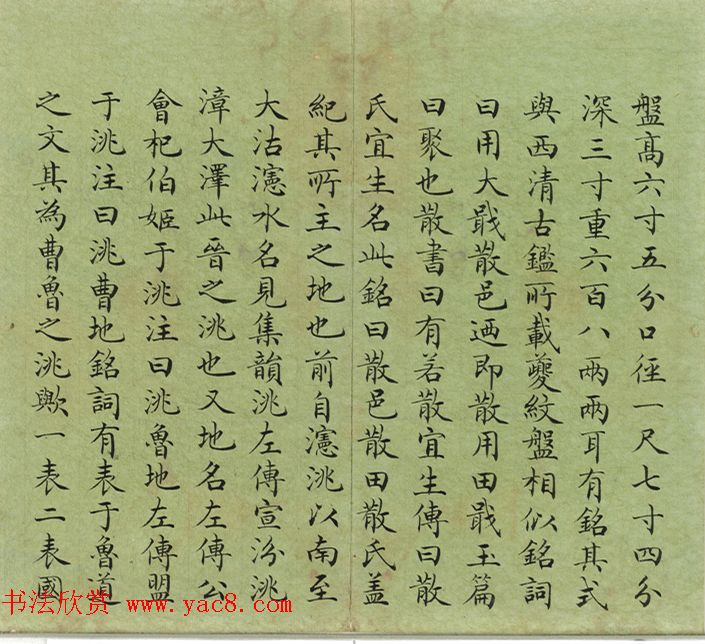 盤高六寸五分口徑一尺七寸四分
深三寸重六百八兩兩耳有銘其式
與西清古鑑所載夔紋盤相似銘詞
曰用大戢散邑迺即散用田戢玉篇
曰聚也散書曰有若散宜生傳曰散
氏宜生名此銘曰散邑散田散氏蓋
紀其所主之地也前自瀗洮以南至
大沽瀗水名見集韻洮左傳宣汾洮
漳大澤此晉之洮也又地名左傳公
會杞伯姬于洮注曰洮魯地左傳盟
于洮注曰洮曹地銘詞有表于魯道
之文其為曹魯之洮歟一表二表國
书法欣赏 www.yac8.com